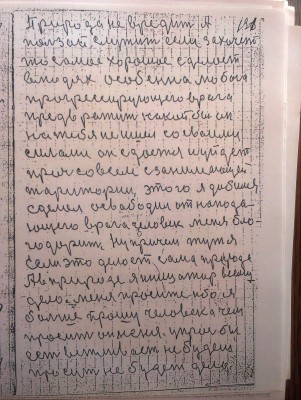 138
Природа не вредит А
пользой служит если захочет
то самое хорошое сделает
в людях особенна любога
прогрессирующего врага
предвратит какой бы он
на тебя не шел со своими
силами он сдается и уйдет
прич совсем с занимающей
тариторий, этого я добился
сделал освабодил от напода-
ющего врага человек меня бло-
годарит, Ну причем тут я
если это делает сама природа
Я в природе я инициатор всему
делу меня просите ибо я
болше прошу человека чем
просит он меня, утрое бы
дет не будет
просит не будет дела